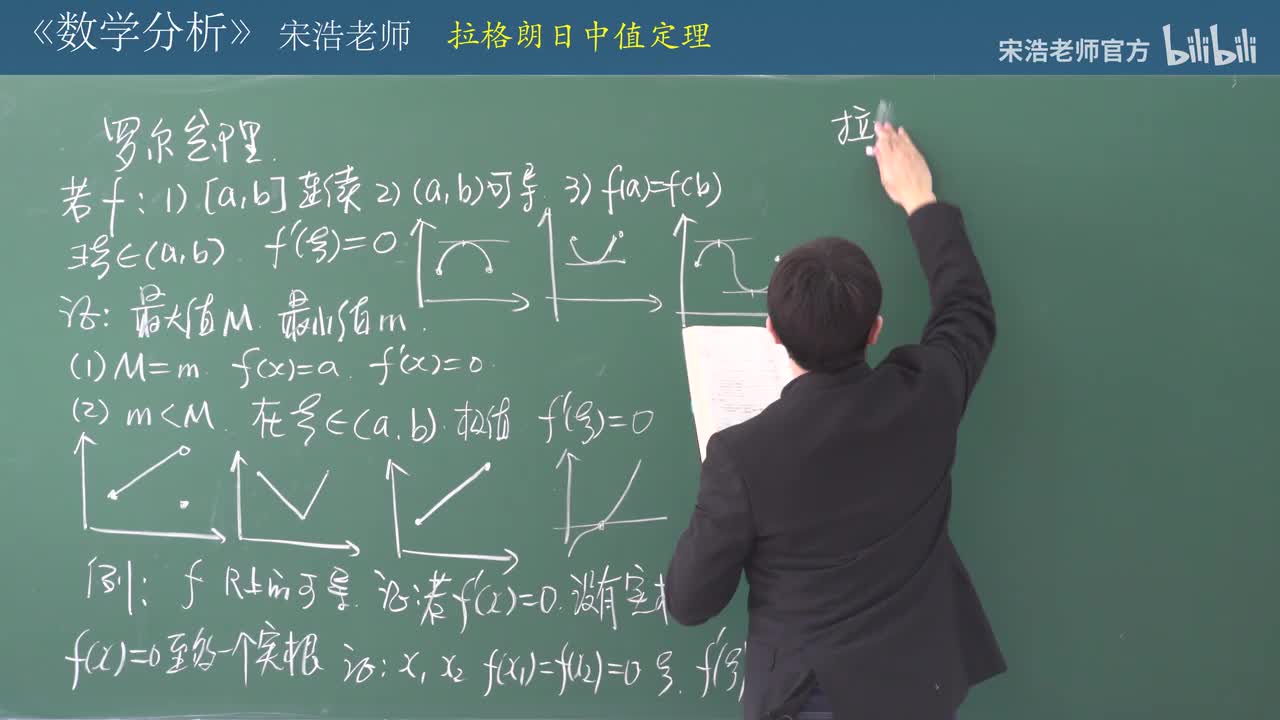 《数学分析》 宋浩老师 拉格朗日中值定理
宋浩老师官方 bilibili
罗尔定理.
若f: 1) [a,b]连续 2) (a,b)可导. 3) f(a)=f(b)
∃ξ∈(a,b). f'(ξ)=0
证: 最大值M. 最小值m.
(1) M=m. f(x)=a. f'(x)=0.
(2) m<M. 在ξ∈(a,b). 极值 f'(ξ)=0
例: f R上可导. 证: 若f'(x)=0. 没有实
f(x)=0至多一个实根 证: x₁ x₂ f(x₁)=f(x₂)=0 ξ. f'(ξ)
拉